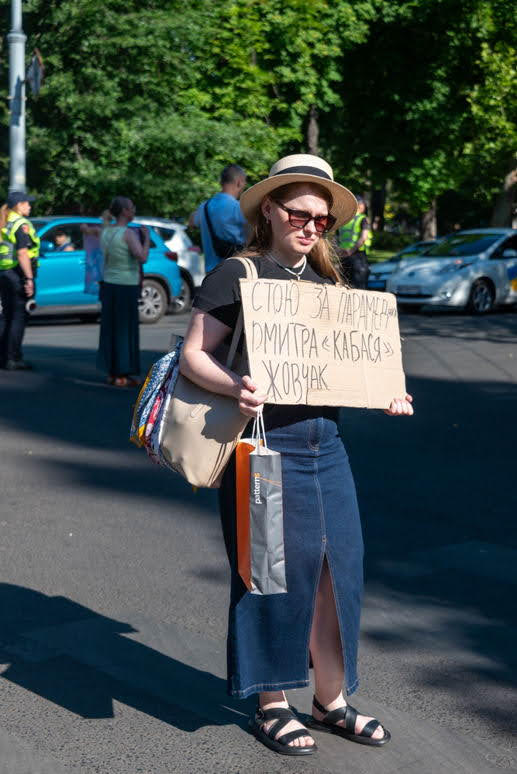 СТОЮ ЗА ПАРАМЕДИКА
ДМИТРА «КАБАСЯ»
ЖОВЧАК
patterns